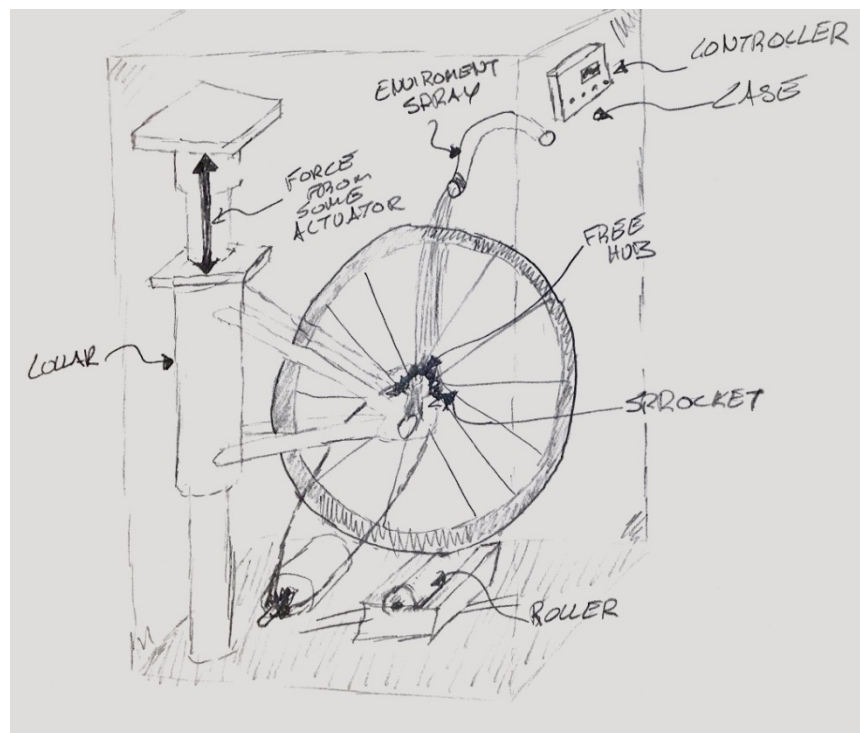 CONTROLLER
CASE
ENVIROMENT
SPRAY
FORCE
FROM
SOME
ACTUATOR
FREE
HUB
COLLAR
SPROCKET
ROLLER